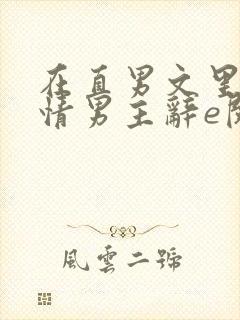 在直男文里
情男主辭e
風雲二號